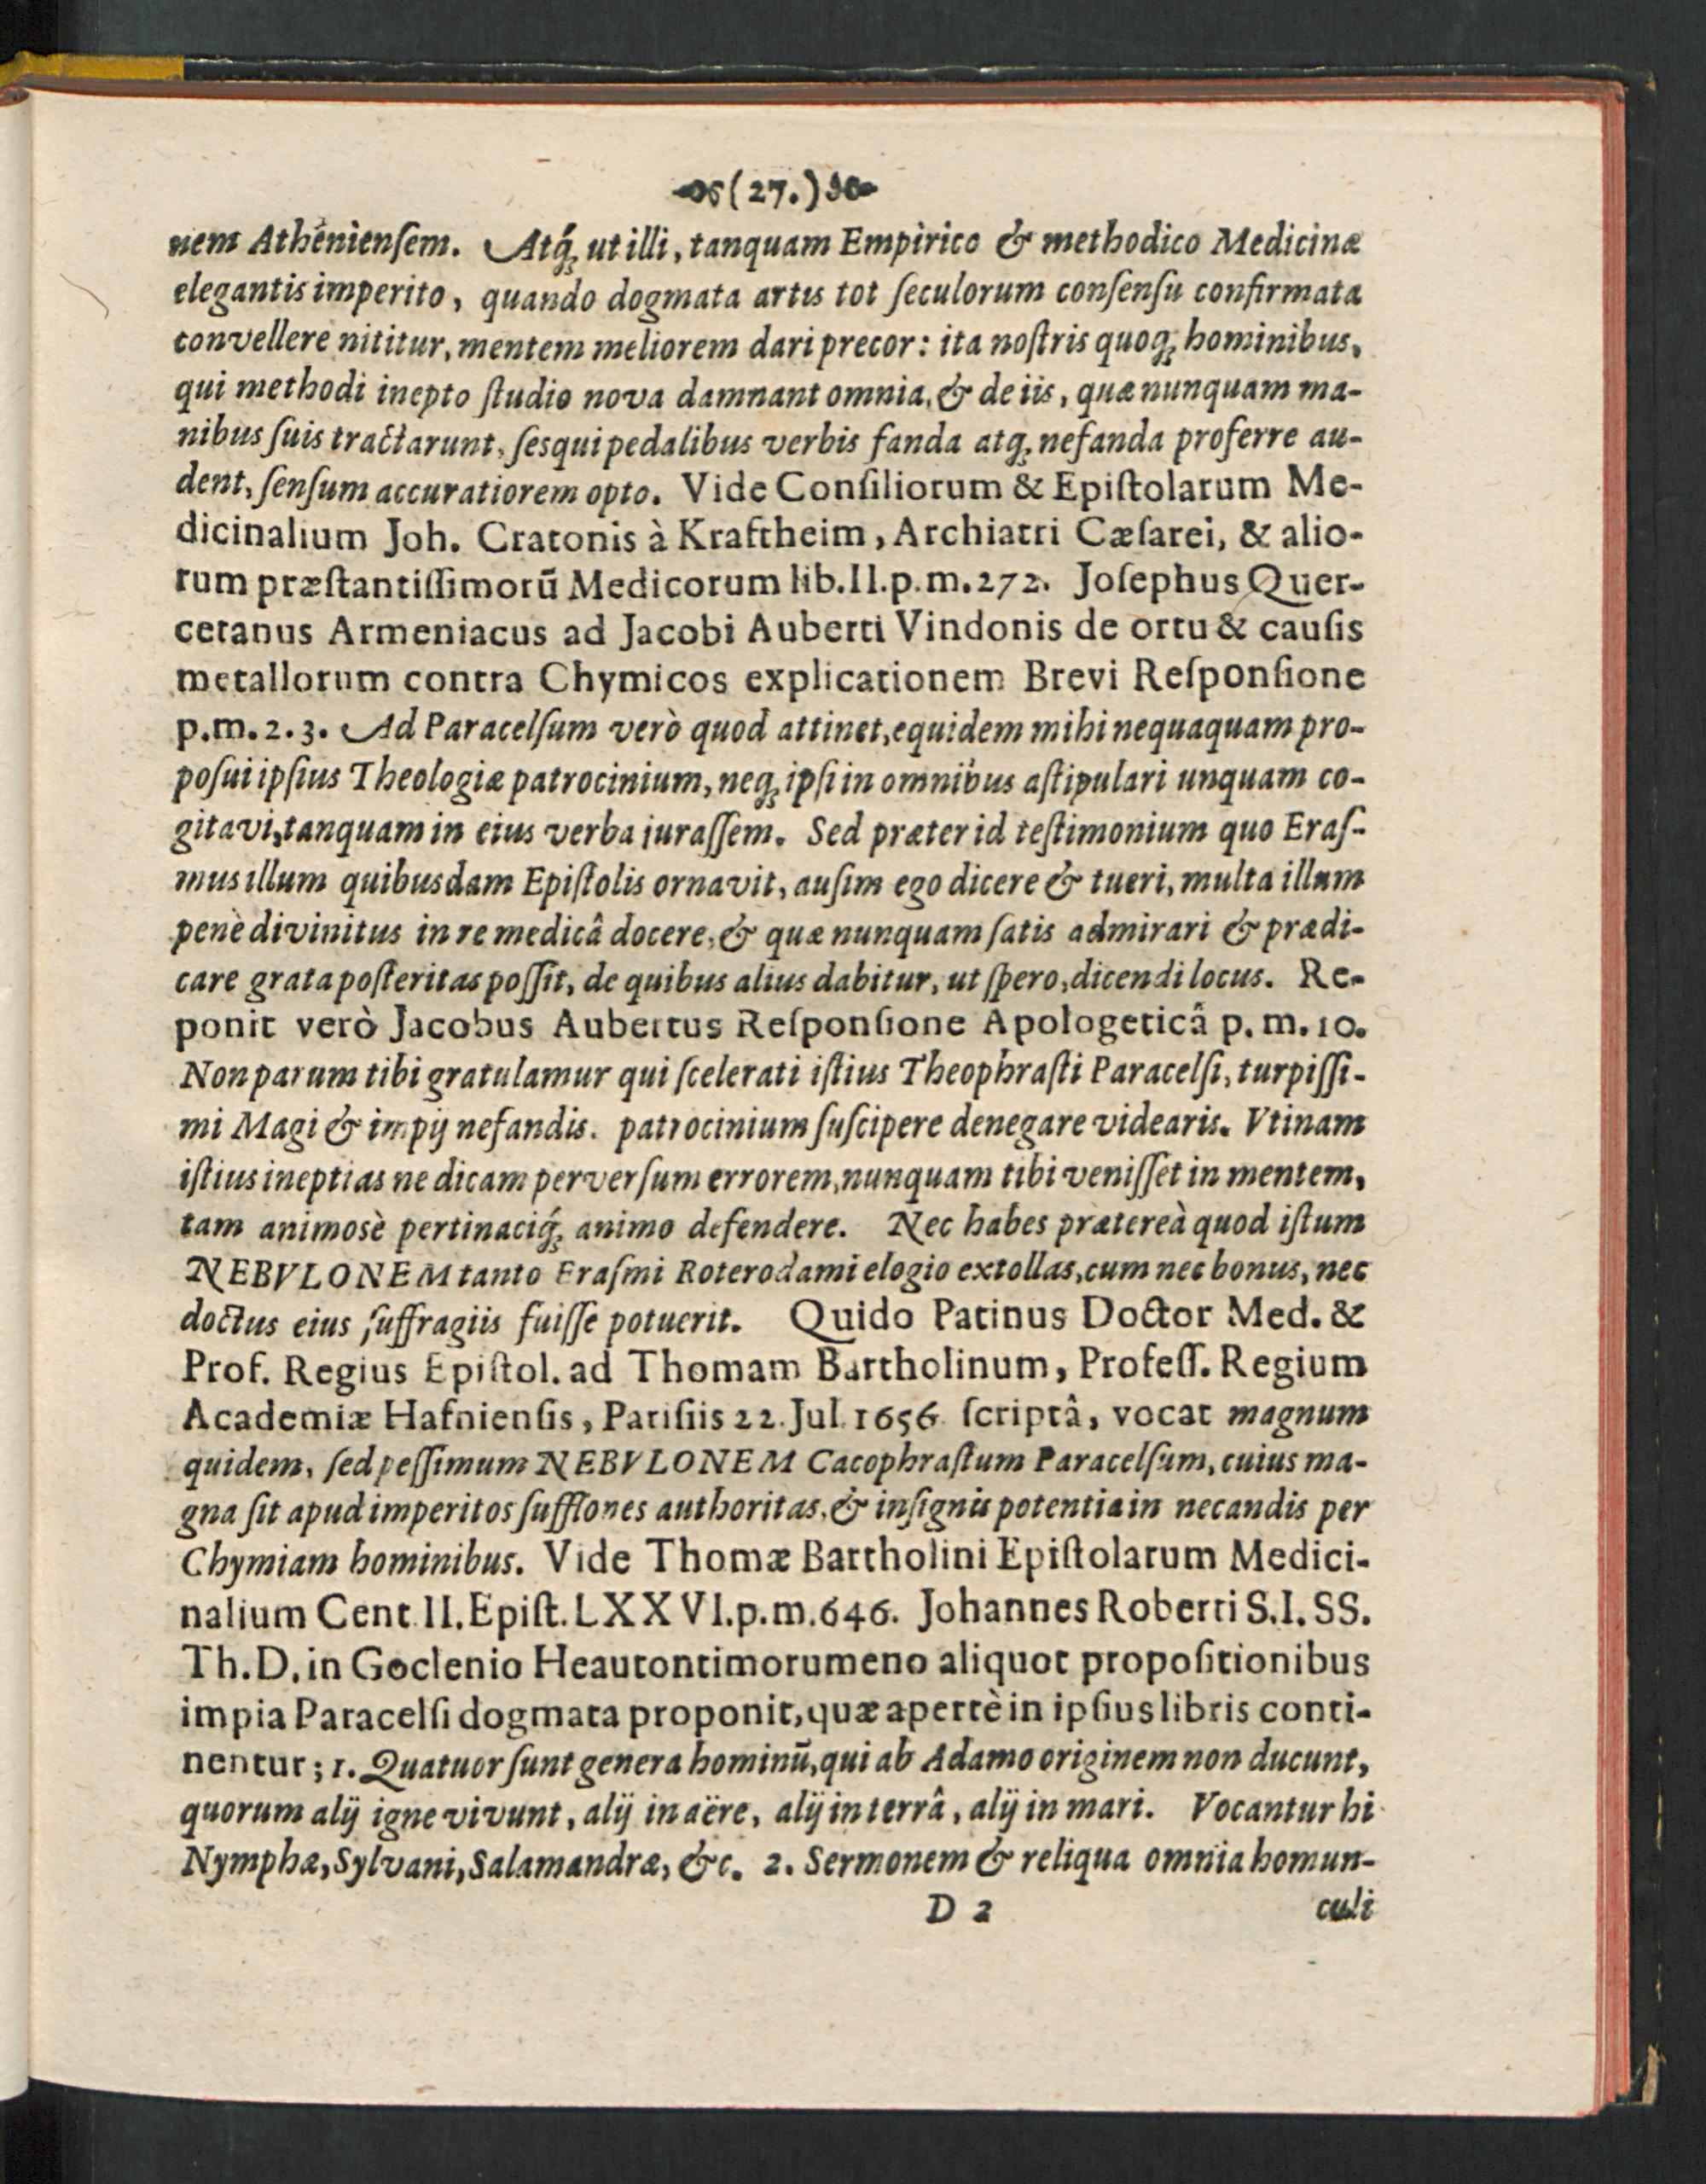 (27.)
nem Athenienſem. Atq́; ut illi, tanquam Empirico & methodico Medicinæ
elegantis imperito, quando dogmata artis tot ſeculorum conſenſu confirmata
convellere nititur, mentem meliorem dari precor: ita noſtris quoq; hominibus,
qui methodi inepto ſtudio nova damnant omnia, & de iis, quæ nunquam ma-
nibus ſuis tractarunt, ſesquipedalibus verbis fanda atq; nefanda proferre au-
dent, ſenſum accuratiorem opto. Vide Conſiliorum & Epiſtolarum Me-
dicinalium Joh. Cratonis à Kraftheim, Archiatri Cæſarei, & alio-
rum præſtantiſſimorũ Medicorum lib. II. p. m. 272. Joſephus Quer-
cetanus Armeniacus ad Jacobi Auberti Vindonis de ortu & cauſis
metallorum contra Chymicos explicationem Brevi Reſponſione
p. m. 2. 3. Ad Paracelſum verò quod attinet, equidem mihi nequaquam pro-
poſui ipſius Theologiæ patrocinium, neq; ipſi in omnibus aſtipulari unquam co-
gitavi, tanquam in eius verba juraſſem. Sed præter id teſtimonium quo Eraſ-
mus illum quibusdam Epiſtolis ornavit, auſim ego dicere & tueri, multa illum
penè divinitus in re medicâ docere, & quæ nunquam ſatis admirari & prædi-
care grata poſteritas poſſit, de quibus alius dabitur, ut ſpero, dicendi locus. Re-
ponit verò Jacobus Aubertus Reſponſione Apologeticâ p. m. 10.
Non parum tibi gratulamur qui ſcelerati iſtius Theophraſti Paracelſi, turpiſſi-
mi Magi & impij nefandis. patrocinium ſuſcipere denegare videaris. Vtinam
iſtius ineptias ne dicam perverſum errorem, nunquam tibi veniſſet in mentem,
tam animosè pertinaciq́; animo defendere. Nec habes prætereà quod iſtum
NEBVLONEM tanto Eraſmi Roterodami elogio extollas, cum nec bonus, nec
doctus eius ſuffragiis fuiſſe potuerit. Quido Patinus Doctor Med. &
Prof. Regius Epiſtol. ad Thomam Bartholinum, Profeſſ. Regium
Academiæ Hafnienſis, Pariſiis 22. Jul. 1656 ſcriptâ, vocat magnum
quidem, ſed peſſimum NEBVLONEM Cacophraſtum Paracelſum, cuius ma-
gna ſit apud imperitos ſufflones authoritas, & inſignis potentia in necandis per
Chymiam hominibus. Vide Thomæ Bartholini Epiſtolarum Medici-
nalium Cent. II. Epiſt. LXXVI. p. m. 646. Johannes Roberti S. I. SS.
Th. D. in Goclenio Heautontimorumeno aliquot propoſitionibus
impia Paracelſi dogmata proponit, quæ apertè in ipſius libris conti-
nentur; 1. Quatuor ſunt genera hominũ, qui ab Adamo originem non ducunt,
quorum alij igne vivunt, alij in aëre, alij in terrâ, alij in mari. Vocantur hi
Nymphæ, Sylvani, Salamandræ, &c. 2. Sermonem & reliqua omnia homun-
D 2 culi